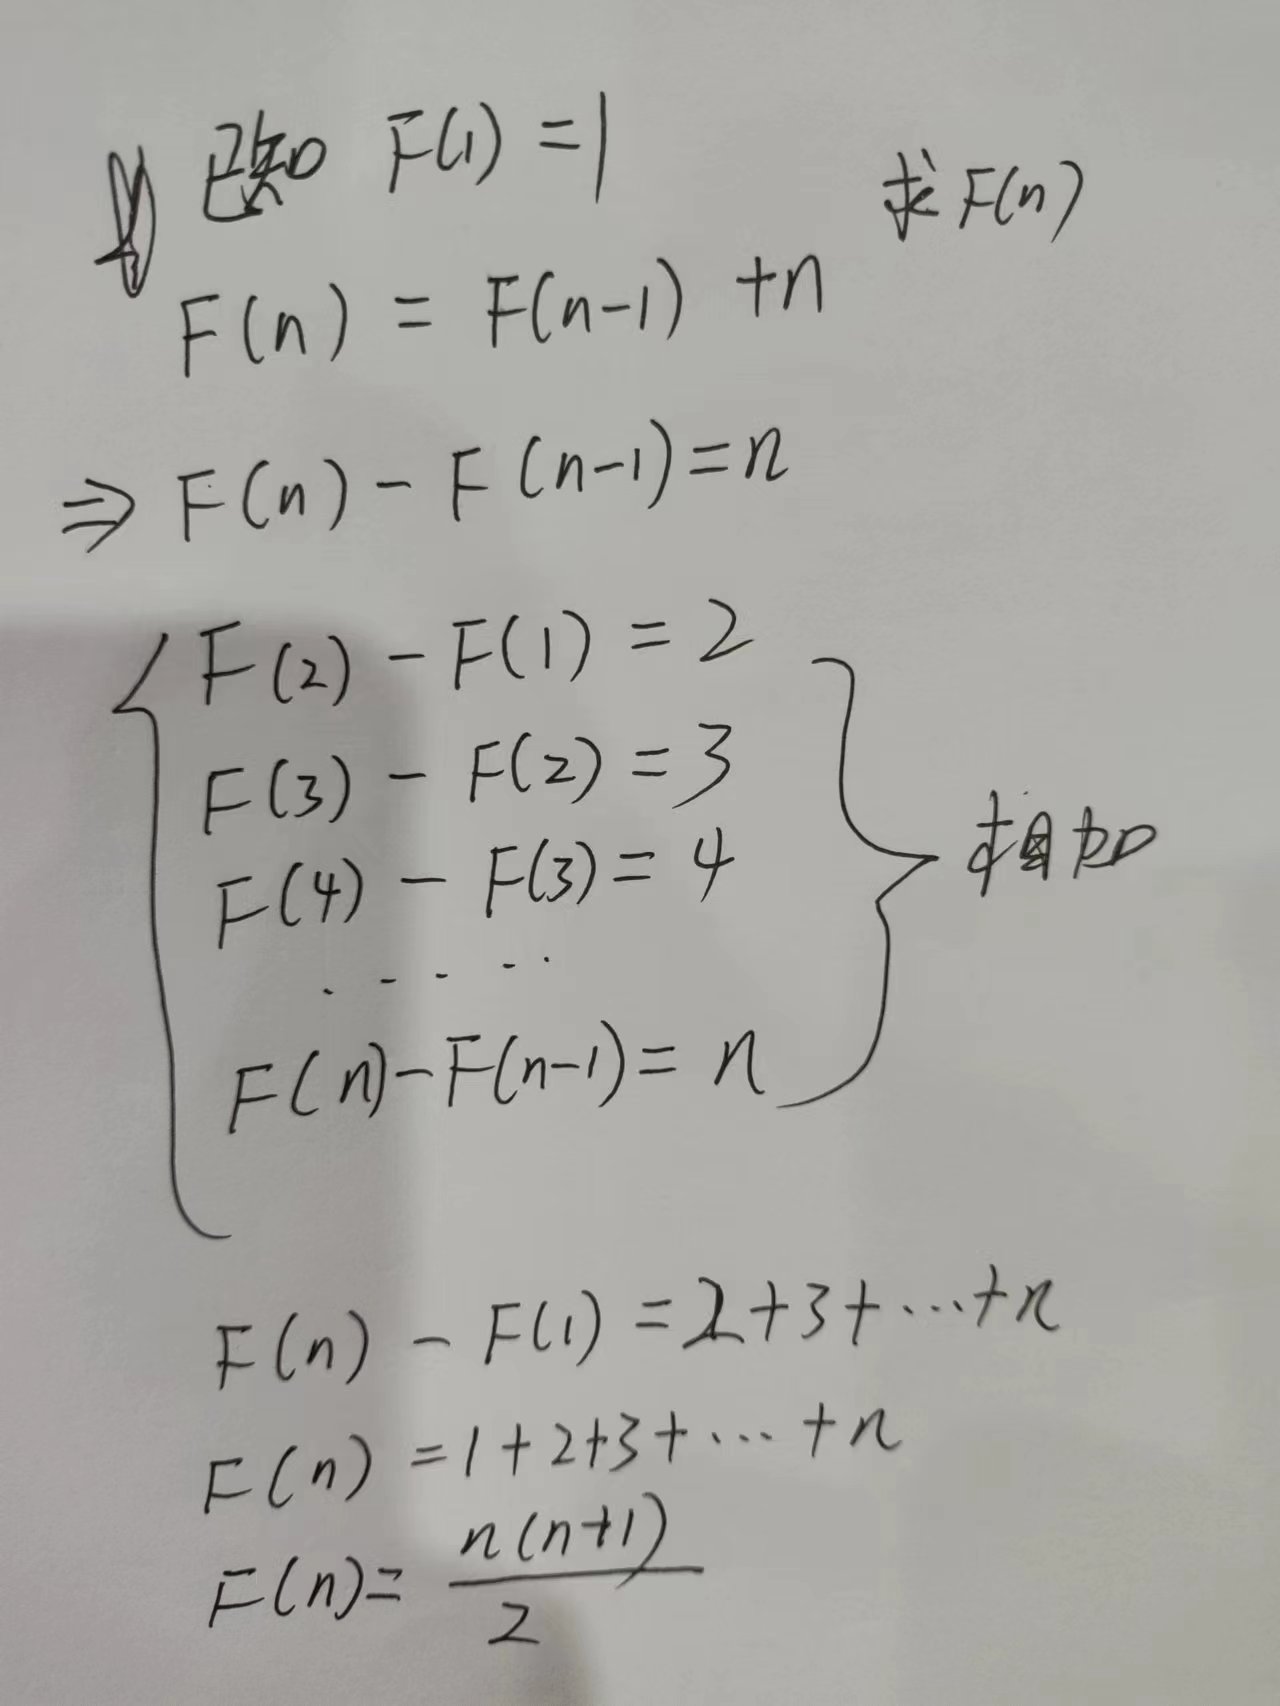 1) 已知 F(1) = 1 求F(n)
F(n) = F(n-1) +n
⇒ F(n) - F(n-1) = n
F(2) - F(1) = 2
F(3) - F(2) = 3
F(4) - F(3) = 4
相加
. - - - ·
F(n) - F(n-1) = n
F(n) - F(1) = 2+3+…+n
F(n) = 1+2+3+…+n
F(n) = n(n+1)/2